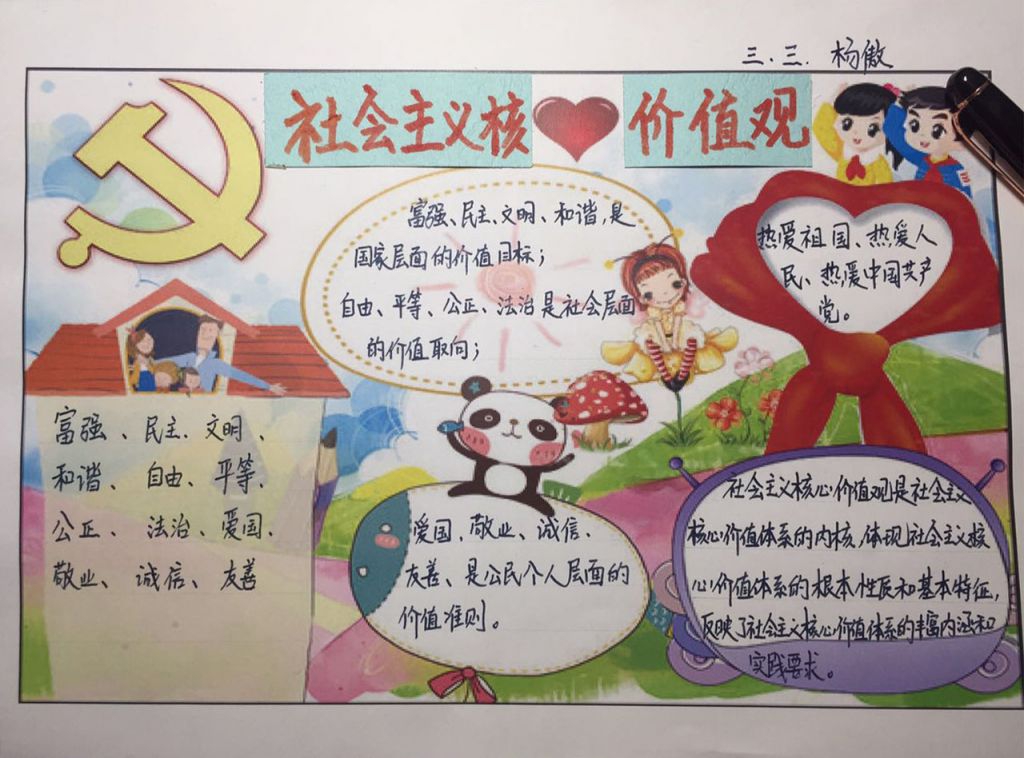 三.三. 杨傲
社会主义核
价值观
富强、民主、文明、和谐,是
国家层面的价值目标;
自由、平等、公正、法治是社会层面
的价值取向;
热爱祖国、热爱人
民、热爱中国共产
党。
富强、民主、文明、
和谐、自由、平等、
公正、法治、爱国、
敬业、诚信、友善
爱国、敬业、诚信、
友善、是公民个人层面的
价值准则。
社会主义核心价值观是社会主义
核心价值体系的内核,体现社会主义核
心价值体系的根本性质和基本特征,
反映了社会主义核心价值体系的丰富内涵和
实践要求。